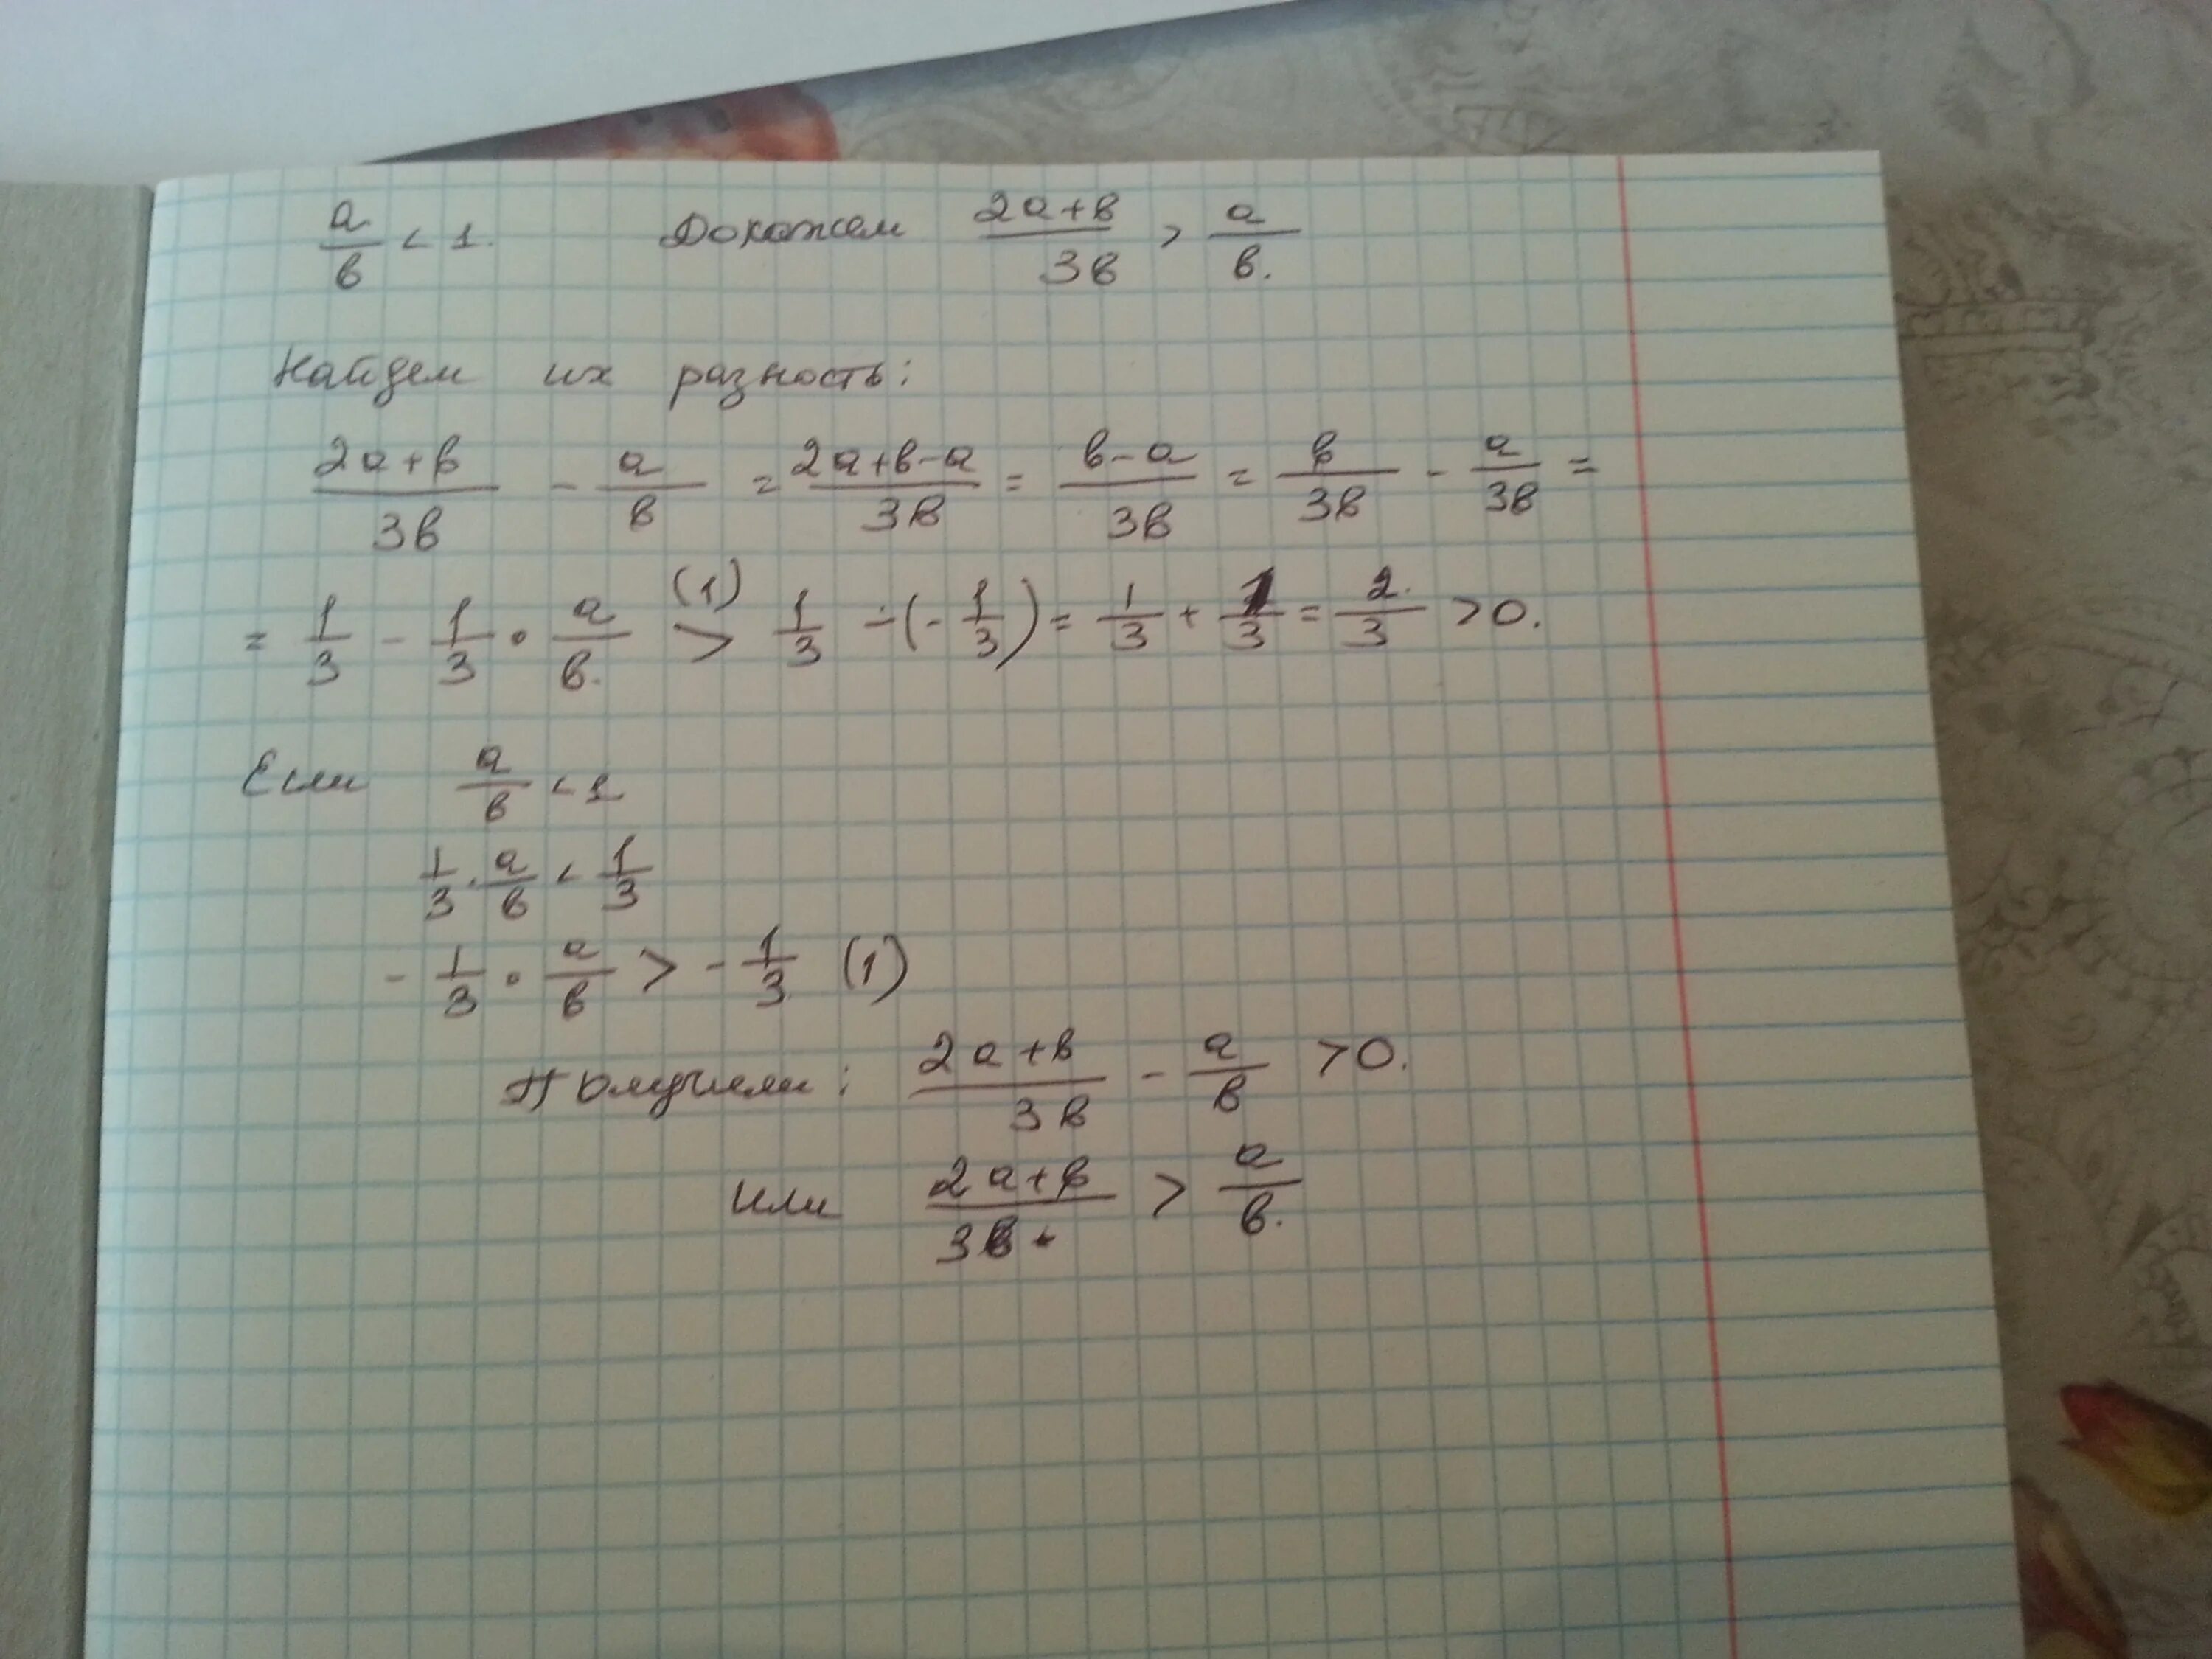 a/в < 1. Докажем (2a+в)/3в > a/в.
Найдем их разность:
(2a+в)/3в - a/в = (2a+в-a)/3в = (в-a)/3в = в/3в - a/3в =
= 1/3 - 1/3 · a/в (1) > 1/3 - (-1/3) = 1/3 + 1/3 = 2/3 > 0.
Если a/в < 1
1/3 · a/в < 1/3
- 1/3 · a/в > - 1/3 (1)
Получили: (2a+в)/3в - a/в > 0.
Или (2a+в)/3в > a/в.